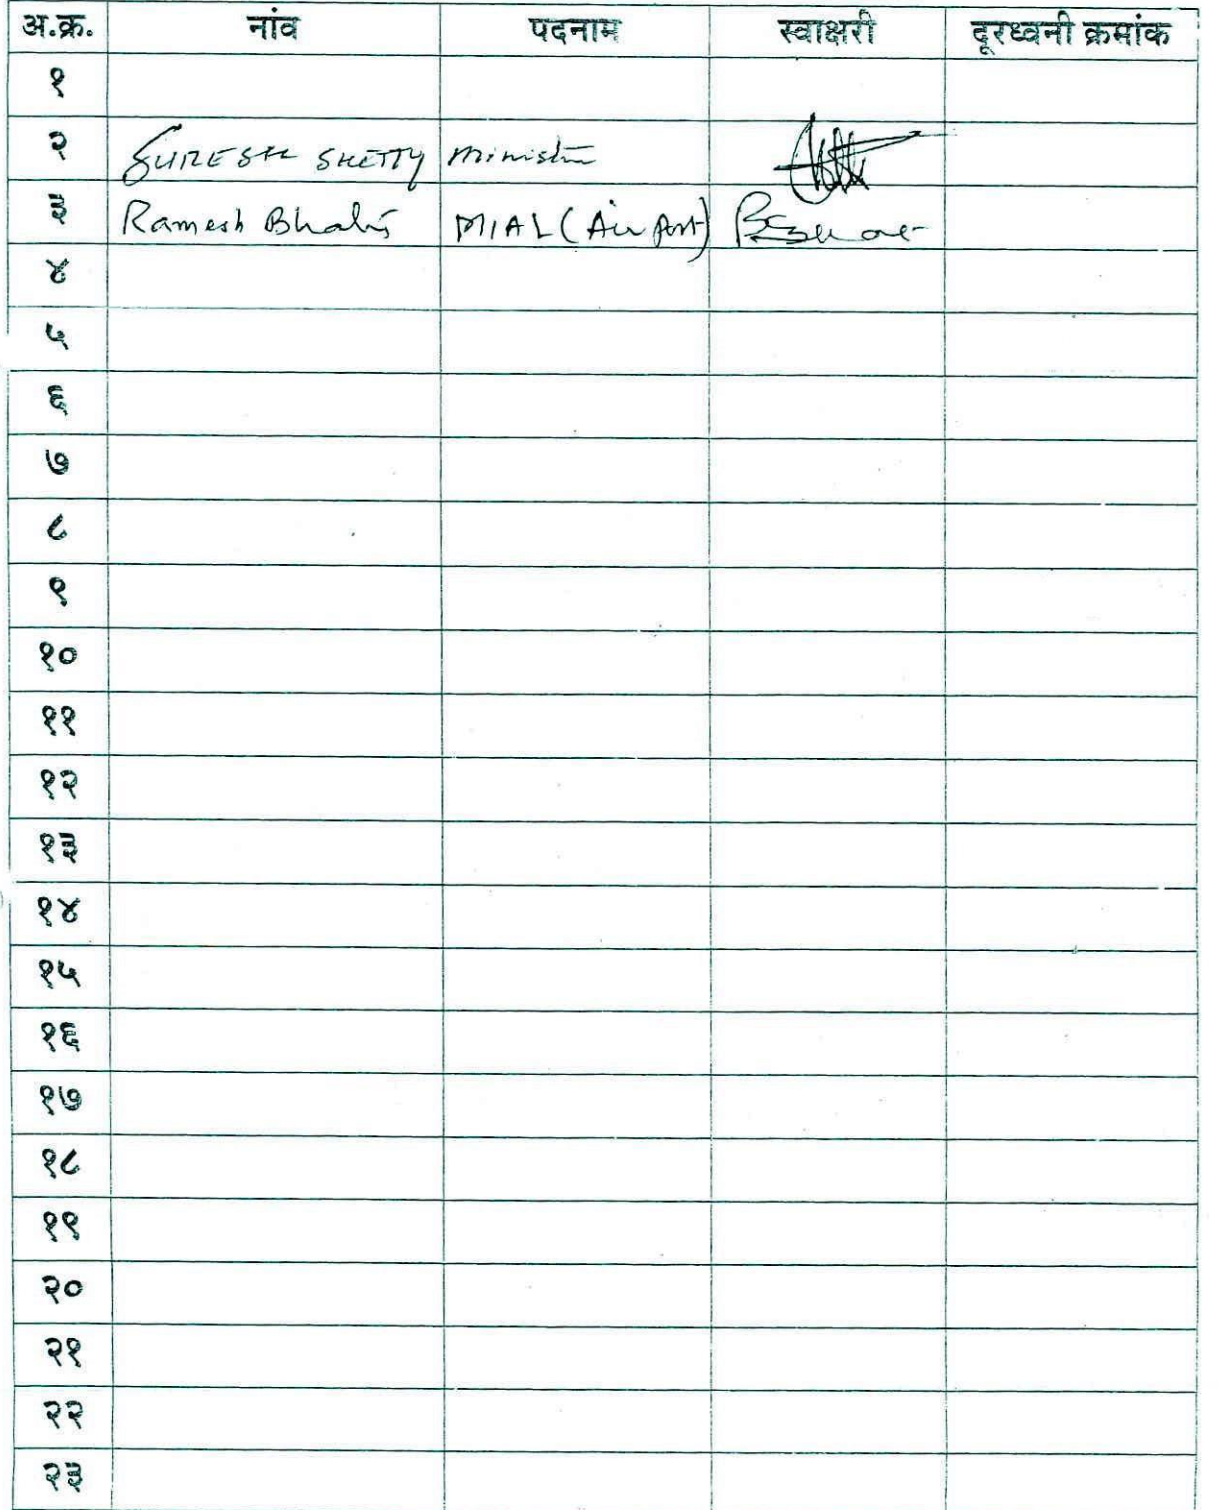 अ.क्र. नांव पदनाम स्वाक्षरी दूरध्वनी क्रमांक
१
२ SURESH SHETTY Minister
३ Ramesh MIAL (Air Port)
४
५
६
७
८
९
१०
११
१२
१३
१४
१५
१६
१७
१८
१९
२०
२१
२२
२३